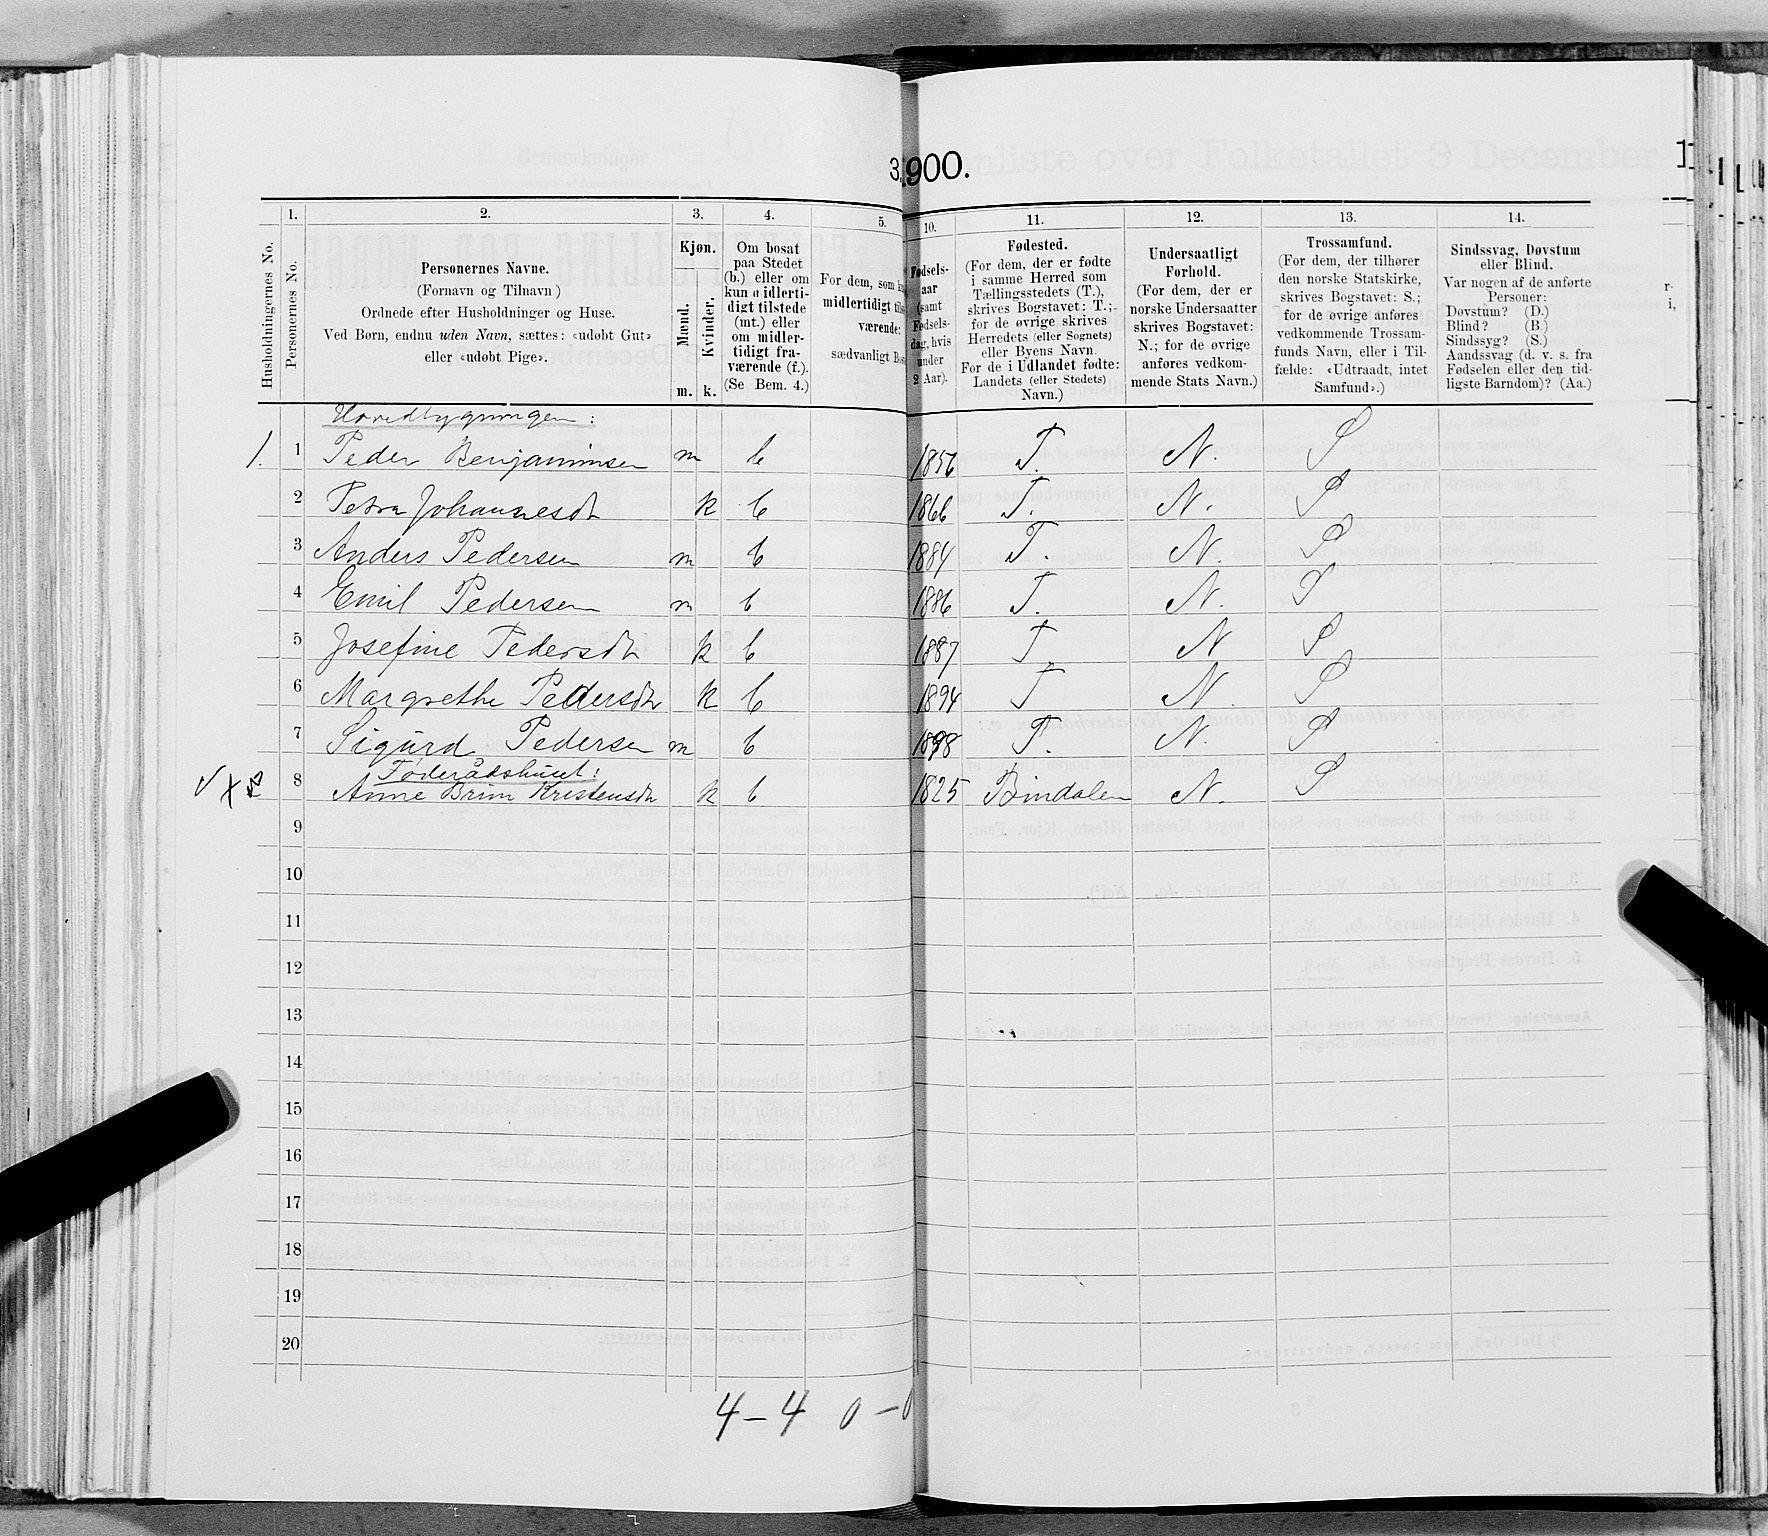 3.
1900.
1.
2.
3.
4.
5.
10.
11.
12.
13.
14.
Husholdningernes No.
Personernes No.
Personernes Navne.
(Fornavn og Tilnavn)
Ordnede efter Husholdninger og Huse.
Ved Børn, endnu uden Navn, sættes: «udøbt Gut»
eller «udøbt Pige».
Kjøn.
Mænd.
Kvinder.
m.
k.
Om bosat
paa Stedet
(b.) eller om
kun midlerti-
digt tilstede
(mt.) eller
om midler-
tidigt fra-
værende (f.).
(Se Bem. 4.)
For dem, som
midlertidigt
værende:
sædvanligt
Fødsels-
aar
(samt
Fødsels-
dag, hvis
under
2 Aar).
Fødested.
(For dem, der er fødte
i samme Herred som
Tællingsstedets (T.),
skrives Bogstavet: T.;
for de øvrige skrives
Herredets (eller Sognets)
eller Byens Navn.
For de i Udlandet fødte:
Landets (eller Stedets)
Navn.)
Undersaatligt
Forhold.
(For dem, der er
norske Undersaatter
skrives Bogstavet:
N.; for de øvrige
anføres vedkom-
mende Stats Navn.)
Trossamfund.
(For dem, der tilhører
den norske Statskirke,
skrives Bogstavet: S.;
for de øvrige anføres
vedkommende Trossam-
funds Navn, eller i Til-
fælde: «Udtraadt, intet
Samfund».)
Sindssvag, Døvstum
eller Blind.
Var nogen af de anførte
Personer:
Døvstum? (D.)
Blind? (B.)
Sindssyg? (S.)
Aandssvag (d. v. s. fra
Fødselen eller den tid-
ligste Barndom)? (Aa.)
Hovedbygningen:
1. 1 Peder Benjaminsen m b 1856 T. N. S
2 Petra Johannesdt k b 1866 T. N. S
3 Anders Pedersen m b 1884 T. N. S
4 Emil Pedersen m b 1886 T. N. S
5 Josefine Pedersdt k b 1887 T N S
6 Margrethe Pedersdt k b 1894 T N. S
7 Sigurd Pedersen m b 1898 T. N. S
Föderådshuset:
8 Anne Brun Kristensdt k b 1825 Bindalen N. S
9
10
11
12
13
14
15
16
17
18
19
20
4-4 0-0